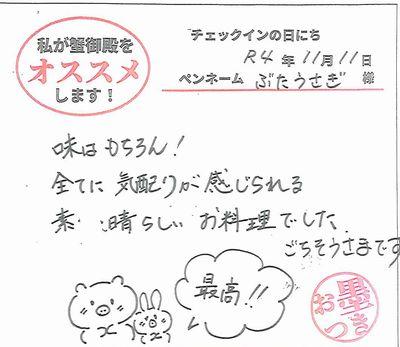 私が蟹御殿を
オススメ
します！
チェックインの日にち
R4年11月11日
ペンネーム ぶたうさぎ 様
味はもちろん！
全てに気配りが感じられる
素晴らしいお料理でした
ごちそうさまです
最高!!
お墨つき